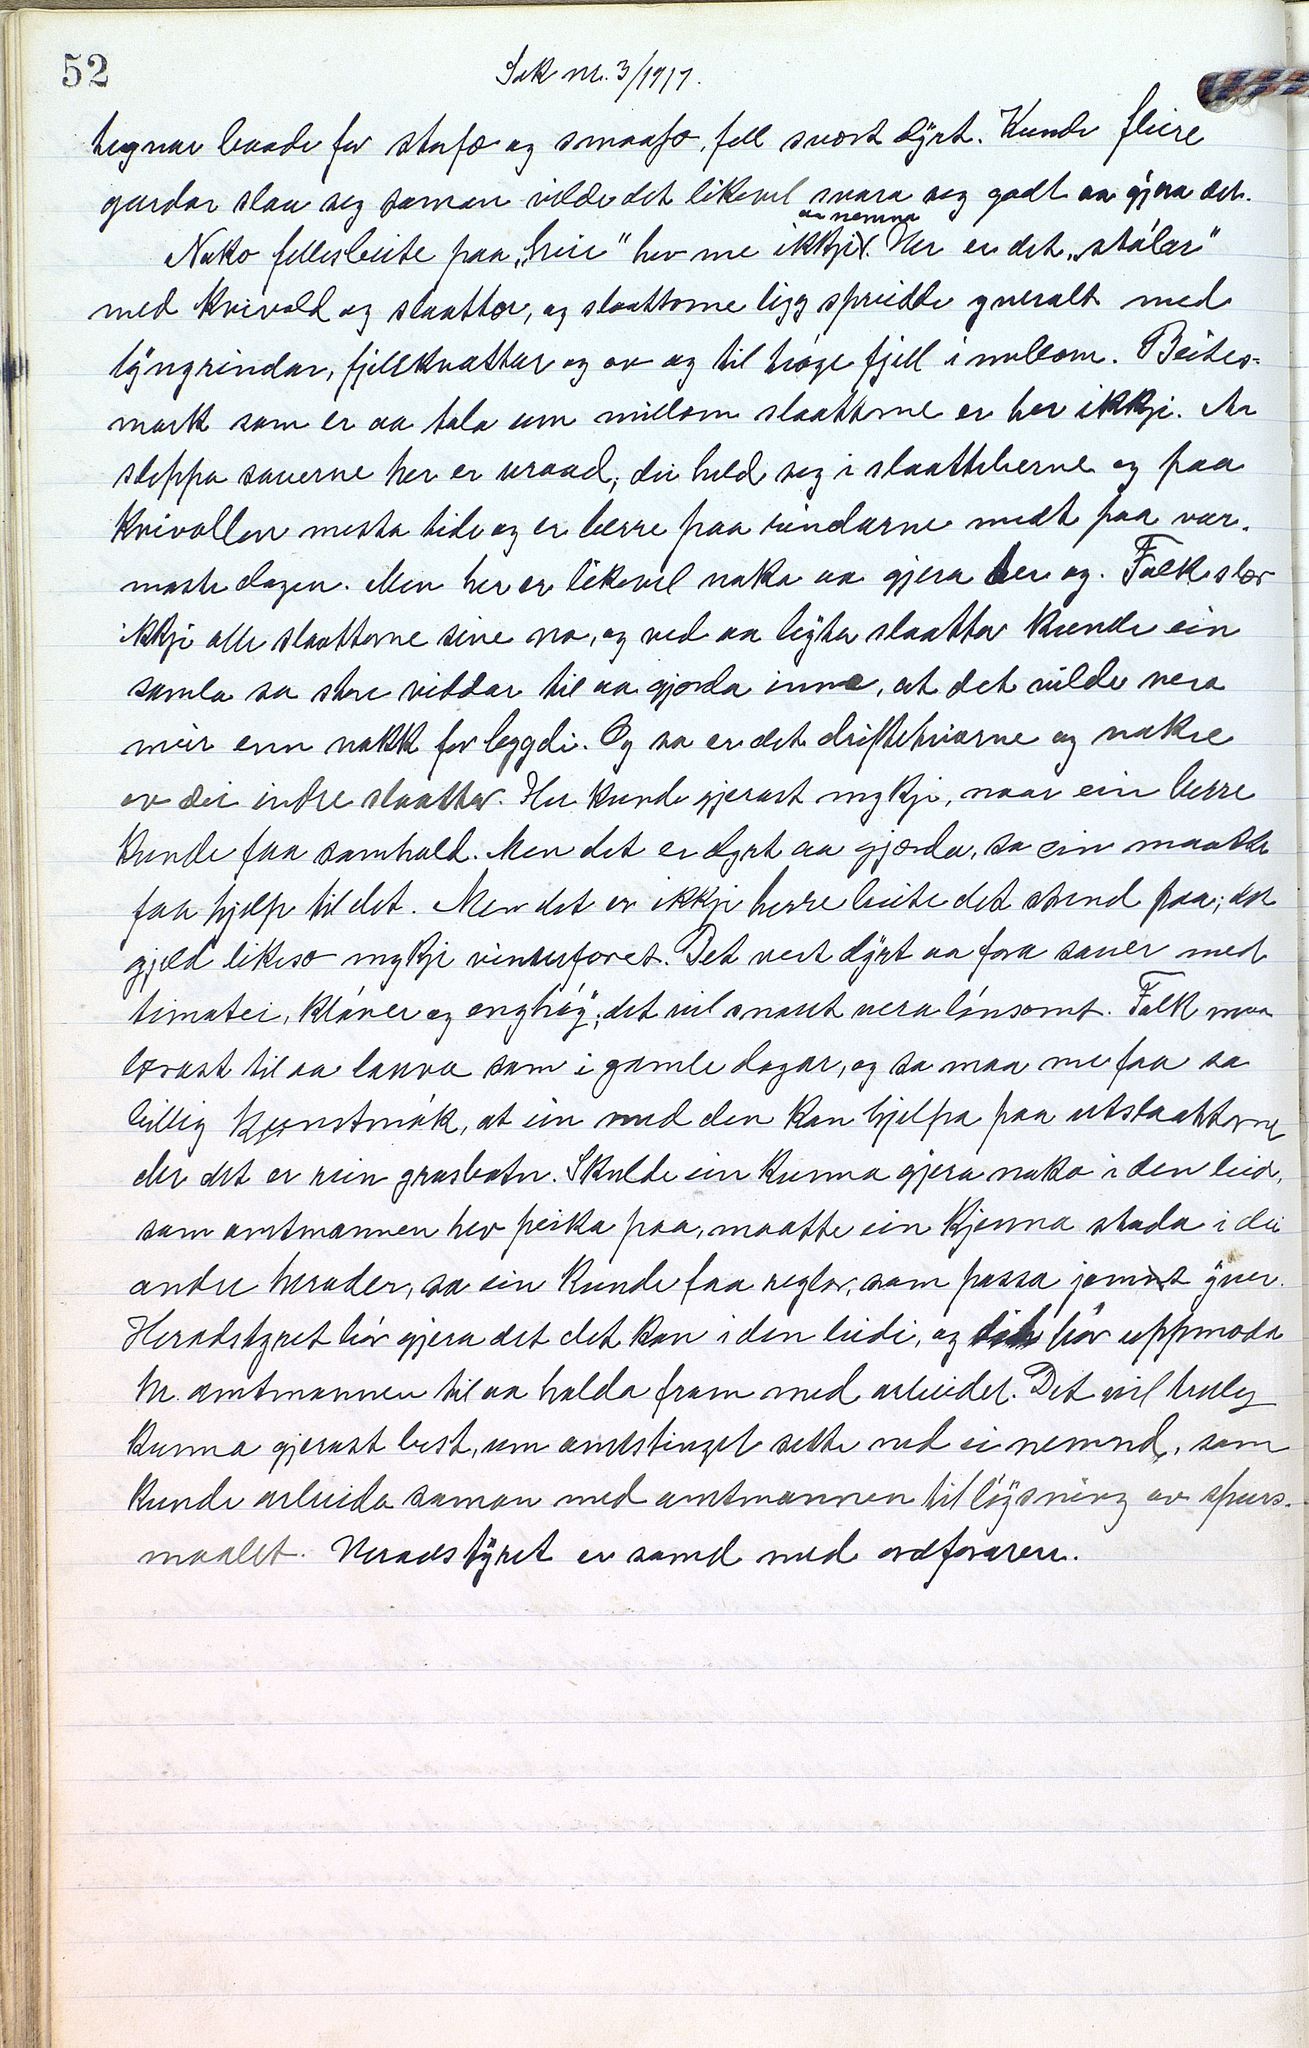 52
Sak nr. 3/1917.
hegnar baade for storfæ og smaafæ, fell svært dyrt. Kunde fleire
gardar slaa seg saman vilde det likevel svara seg godt aa gjera det.
aa nemna
Noko fellesbeite paa „heie" hev me ikkje. Her er det „stölar"
med kvivold og slaattor, og slaattorne ligg spreidde yveralt med
lyngrindar, fjellknattar og av og til höge fjell i millom. Beites-
mark som er aa tala um millom slaattorne er her ikkje. Aa
sleppa sauerne her er uraad; dei held seg i slaattelierne og paa
kvivollen mesta tidi og er berre paa rindarne midt paa var-
maste dagen. Men her er likevel noko aa gjera her og. Folk slær
ikkje alle slaattorne sine no, og ved aa byta slaattor kunde ein
samla so store viddar til aa gjerda inne, at det vilde vera
meir enn nokk for bygdi. Og so er det driftehviorne og nokre
av dei indre slaattor. Her kunde gjerast mykje, naar ein berre
kunde faa samhald. Men det er dyrt aa gjerda, so ein maatte
faa hjelp til det. Men det er ikkje berre beite det stend paa; det
gjeld likeso mykje vinterforet. Det vert dyrt aa fora sauer med
timotei, klöver og enghöy; det vil snaut vera lönsomt. Folk maa
lærast til aa lauva som i gamle dagar, og so maa me faa so
billig kjunstmök, at ein med den kan hjelpa paa utslaattorne
der det er rein grasbotn. Skulde ein kunna gjera noko i den leid,
som amtmannen hev peika paa, maatte ein kjenna stoda i dei
andre herader, so ein kunde faa reglar, som passa jamnt yver.
Heradstyret bör gjera det det kan i den leidi, og bör uppmoda
hr. amtmannen til aa halda fram med arbeidet. Det vil truleg
kunna gjerast best, um amtstinget sette ned ei nemnd, som
kunde arbeida saman med amtmannen til löysning av spurs-
maalet. Heradstyret er samd med ordforaren.